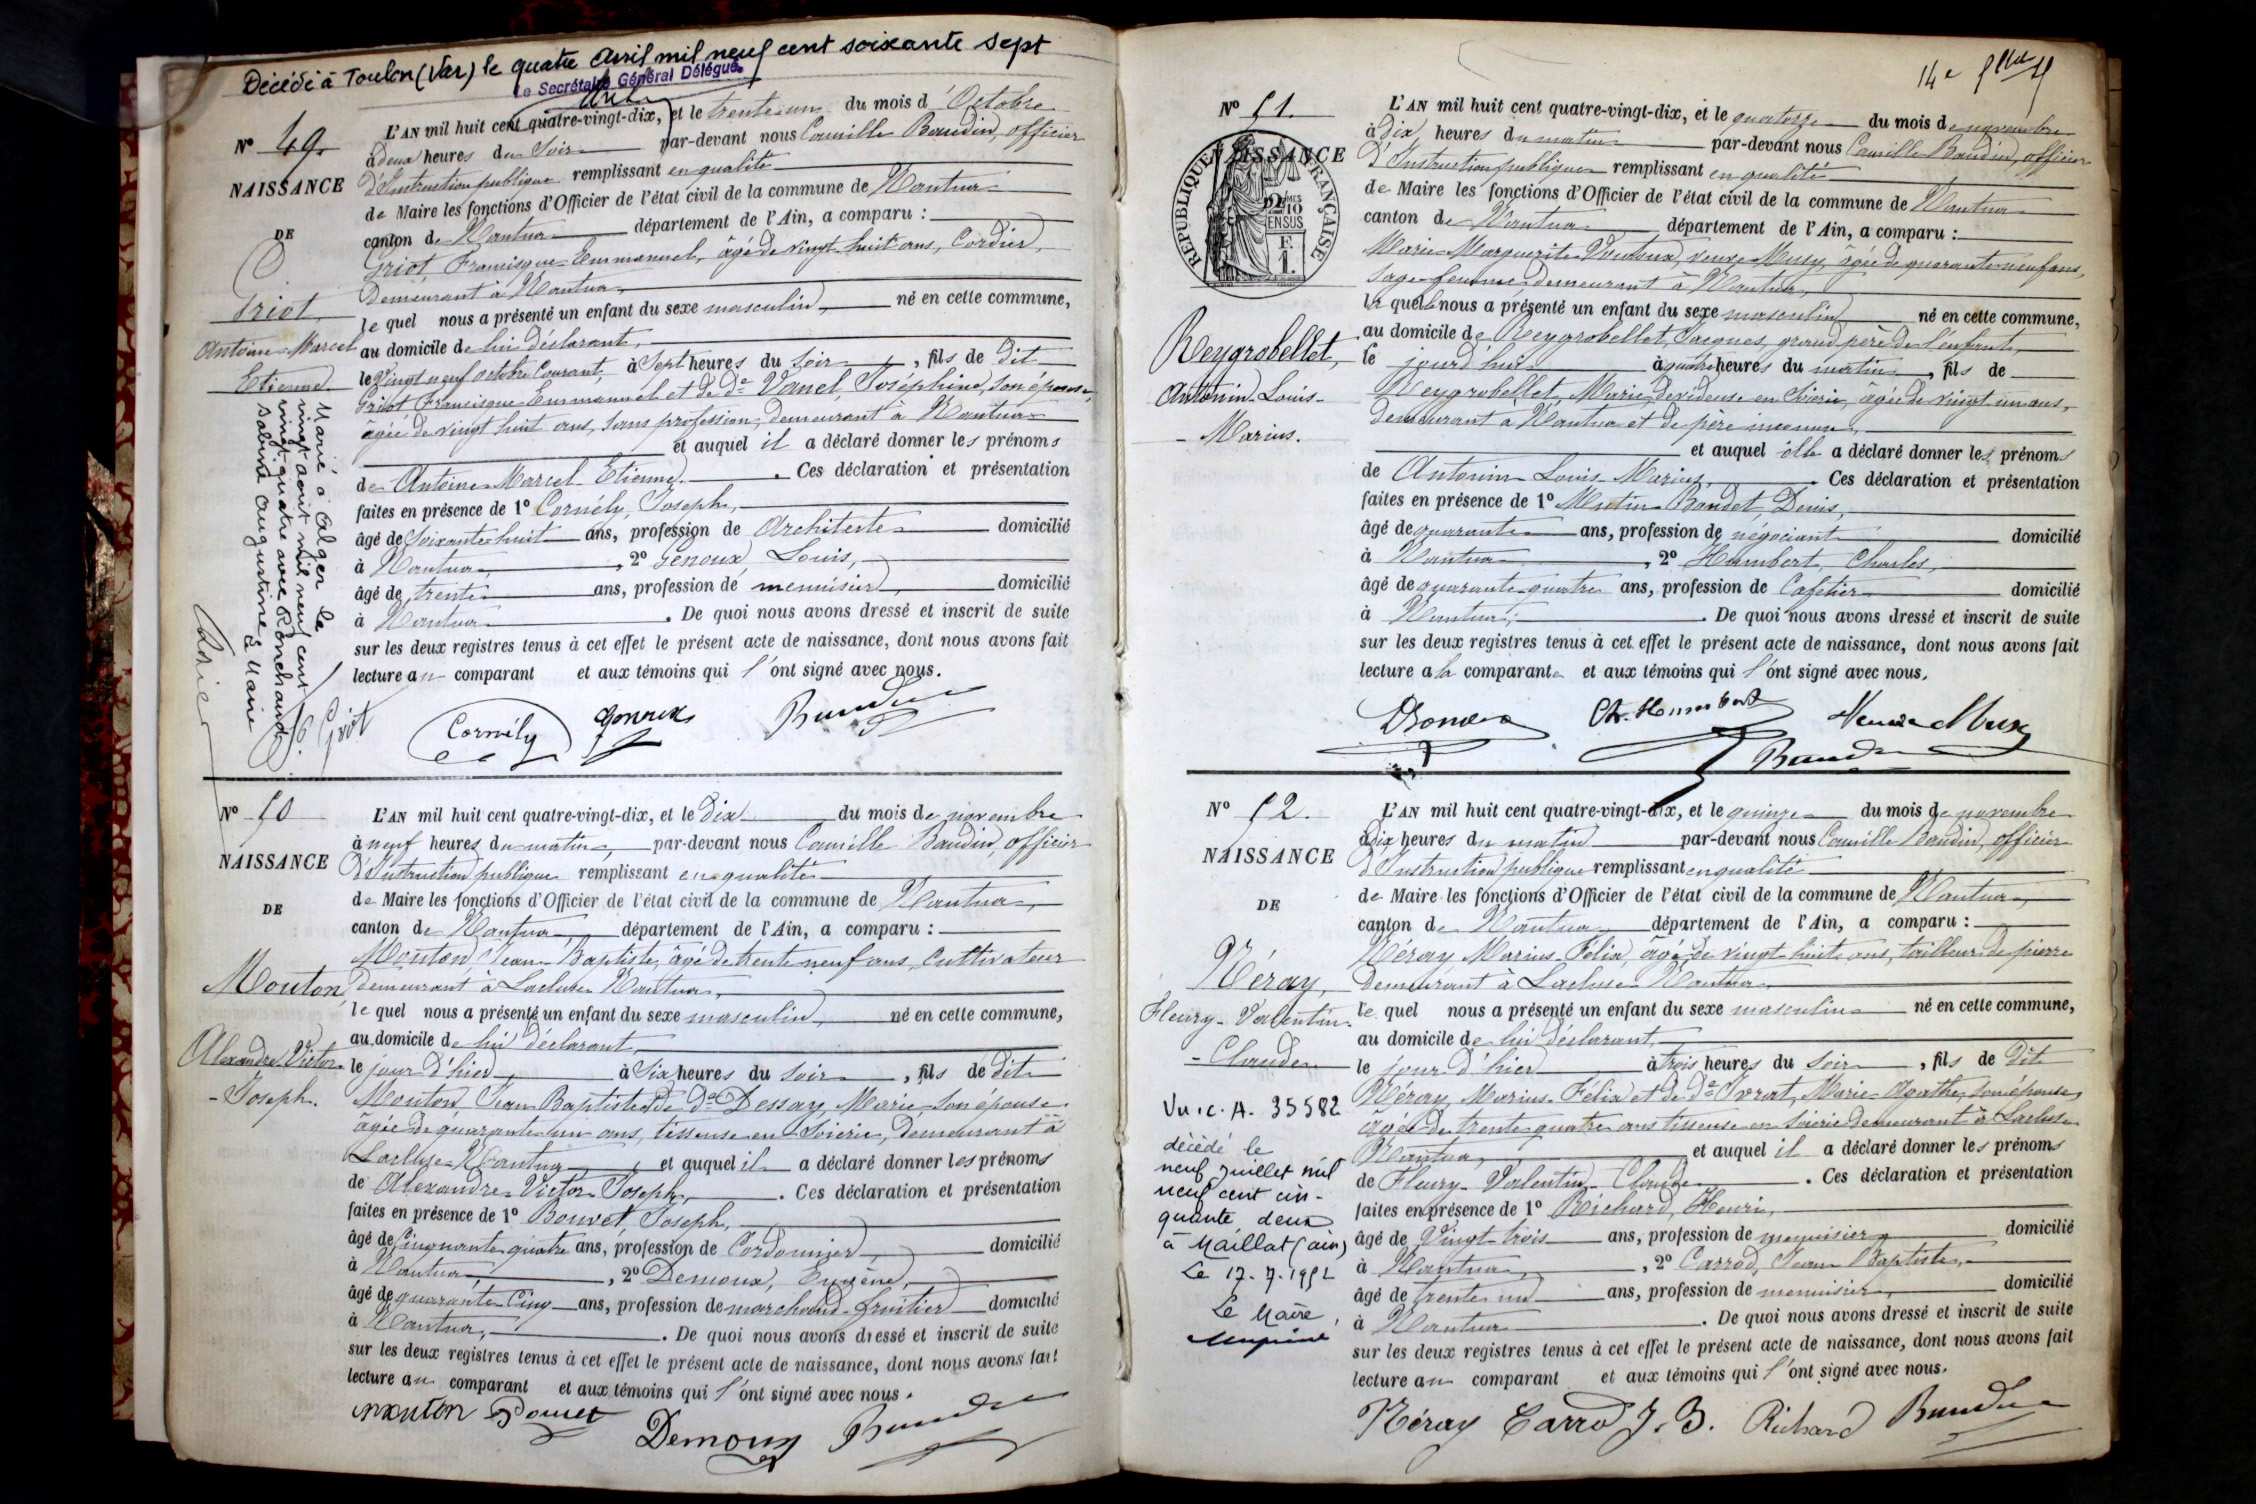 Décédé à Toulon (Var) le quatre avril mil neuf cent soixante sept
Le Secrétaire Général Délégué
Nº 49.
NAISSANCE
DE
Griot
Antoine-Marcel
Etienne
Marié à Alger le
vingt août mil neuf cent
vingt quatre avec Ronchaud
Sabine Augustine
Le Maire
L'AN mil huit cent quatre-vingt-dix, et le trente un du mois d'Octobre
à deux heures du Soir par-devant nous Camille Baudin, officier
d'Instruction publique remplissant en qualité
de Maire les fonctions d'Officier de l'état civil de la commune de Nantua
canton de Nantua département de l'Ain, a comparu :
Griot Francisque-Emmanuel, âgé de vingt-huit ans, Cordier,
Demeurant à Nantua
le quel nous a présenté un enfant du sexe masculin, né en cette commune,
au domicile de lui déclarant,
le Vingt neuf octobre Courant, à Sept heures du soir, fils de dit
Griot Francisque Emmanuel et de De Vanel, Joséphine, son épouse,
âgée de vingt huit ans, sans profession, demeurant à Nantua
et auquel il a déclaré donner les prénoms
de Antoine-Marcel Etienne. Ces déclaration et présentation
faites en présence de 1º Cornély, Joseph,
âgé de Soixante-huit ans, profession de Architecte domicilié
à Nantua, 2º Genoux, Louis,
âgé de trente ans, profession de menuisier, domicilié
à Nantua. De quoi nous avons dressé et inscrit de suite
sur les deux registres tenus à cet effet le présent acte de naissance, dont nous avons fait
lecture au comparant et aux témoins qui l'ont signé avec nous.
Griot Cornély Genoux Baudin
Nº 50
NAISSANCE
DE
Mouton,
Alexandre Victor
-Joseph.
L'AN mil huit cent quatre-vingt-dix, et le Dix du mois de novembre
à neuf heures du matin, par-devant nous Camille Baudin, officier
d'Instruction publique remplissant en qualité
de Maire les fonctions d'Officier de l'état civil de la commune de Nantua,
canton de Nantua, département de l'Ain, a comparu :
Mouton Jean-Baptiste, âgé de trente neuf ans, Cultivateur
demeurant à Lacluse-Nantua,
le quel nous a présenté un enfant du sexe masculin, né en cette commune,
au domicile de lui déclarant,
le jour d'hier, à Six heures du soir, fils de dit
Mouton Jean Baptiste et de De Dessay, Marie, son épouse.
âgée de quarante un ans, tisseuse en Soierie, demeurant à
Lacluse-Nantua, et auquel il a déclaré donner les prénoms
de Alexandre-Victor Joseph. Ces déclaration et présentation
faites en présence de 1º Bouvet, Joseph,
âgé de Cinquante quatre ans, profession de Cordonnier, domicilié
à Nantua, 2º Demoux, Eugène,
âgé de quarante-Cinq ans, profession de marchand-fruitier domicilié
à Nantua. De quoi nous avons dressé et inscrit de suite
sur les deux registres tenus à cet effet le présent acte de naissance, dont nous avons fait
lecture au comparant et aux témoins qui l'ont signé avec nous.
mouton Bouvet Demoux Baudin
14e
Nº 51.
NAISSANCE
REPUBLIQUE FRANÇAISE
2/10 MES
EN SUS
F.
1.
Reygrobellet,
Antonin-Louis-
-Marius.
L'AN mil huit cent quatre-vingt-dix, et le quatorze du mois de novembre
à dix heures du matin par-devant nous Camille Baudin, officier
d'Instruction publique remplissant en qualité
de Maire les fonctions d'Officier de l'état civil de la commune de Nantua
canton de Nantua département de l'Ain, a comparu :
Marie-Marguerite veuve Musy, âgée de quarante neuf ans,
Sage-femme demeurant à Nantua,
la quelle nous a présenté un enfant du sexe masculin né en cette commune,
au domicile de Reygrobellet, Jacques, grand père de l'enfant,
le jourd'hui à quatre heures du matin, fils de
Reygrobellet, Marie, dévideuse en Soierie, âgée de vingt-un ans,
demeurant à Nantua et de père inconnu,
et auquel elle a déclaré donner les prénoms
de Antonin Louis-Marius, Ces déclaration et présentation
faites en présence de 1º Baudet, Denis,
âgé de quarante ans, profession de négociant domicilié
à Nantua, 2º Humbert, Charles,
âgé de quarante-quatre ans, profession de Cafetier domicilié
à Nantua; De quoi nous avons dressé et inscrit de suite
sur les deux registres tenus à cet effet le présent acte de naissance, dont nous avons fait
lecture a la comparante et aux témoins qui l'ont signé avec nous,
Ch. Humbert Baudin
Nº 52.
NAISSANCE
DE
Néray,
Fleury-Valentin-
-Claude
Vu. c. A. 35582
décédé le
neuf Juillet mil
neuf cent cin-
quante deux
à Maillat (ain)
Le 17.7.1952
Le Maire,
L'AN mil huit cent quatre-vingt-dix, et le quinze du mois de novembre
à dix heures du matin par-devant nous Camille Baudin, officier
d'Instruction publique remplissant en qualité
de Maire les fonctions d'Officier de l'état civil de la commune de Nantua,
canton de Nantua, département de l'Ain, a comparu :
Néray Marius-Félix, âgé de vingt-huit ans, tailleur de pierre
Demeurant à Lacluse-Nantua
le quel nous a présenté un enfant du sexe masculin né en cette commune,
au domicile de lui déclarant,
le jour d'hier à trois heures du soir, fils de Dit
Néray Marius-Félix et de De Marie-Agathe, son épouse,
âgée de trente quatre ans tisseuse en Soierie demeurant à Lacluse-
Nantua, et auquel il a déclaré donner les prénoms
de Fleury-Valentin-Claude. Ces déclaration et présentation
faites en présence de 1º Richard, Henri,
âgé de Vingt trois ans, profession de menuisier domicilié
à Nantua, 2º Carrod, Jean Baptiste,
âgé de trente un ans, profession de menuisier, domicilié
à Nantua. De quoi nous avons dressé et inscrit de suite
sur les deux registres tenus à cet effet le présent acte de naissance, dont nous avons fait
lecture au comparant et aux témoins qui l'ont signé avec nous.
Néray Carrod J. B. Richard Baudin